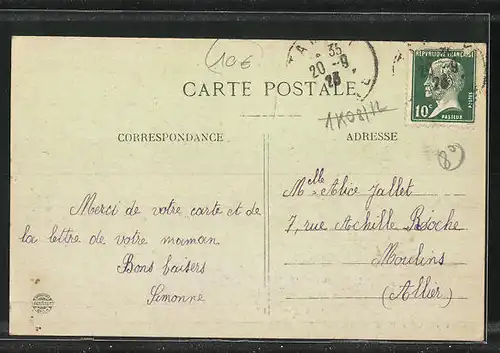 (10€)
35
20-9
23
RÉPUBLIQUE FRANÇAISE
POSTES
10c
PASTEUR
CARTE POSTALE
CORRESPONDANCE
ADRESSE
Merci de votre carte et de
la lettre de votre maman
Bons baisers
Simonne
Mlle Alice Jallet
7, rue Achille Roche
Moulins
(Allier)